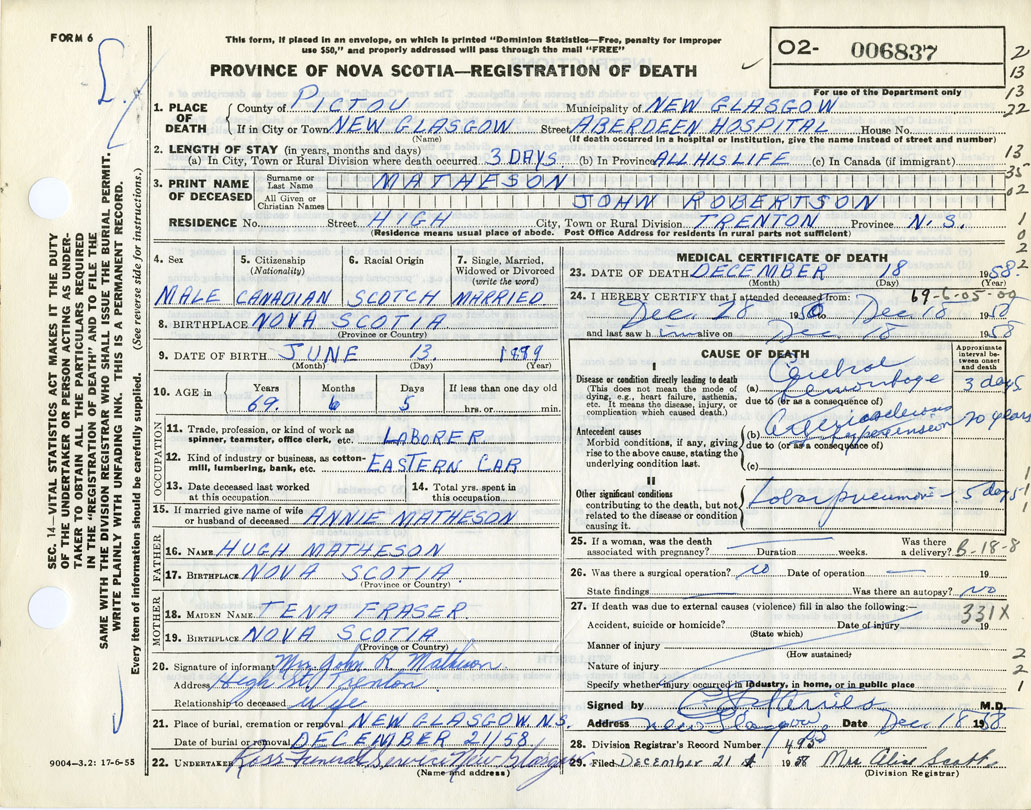 FORM 6
This form, if placed in an envelope, on which is printed "Dominion Statistics—Free, penalty for improper
use $50," and properly addressed will pass through the mail "FREE"
PROVINCE OF NOVA SCOTIA—REGISTRATION OF DEATH
O2- 006837
For use of the Department only
2
13
13
22
13
35
02
1
0
2
SEC. 14—VITAL STATISTICS ACT MAKES IT THE DUTY
OF THE UNDERTAKER OR PERSON ACTING AS UNDER-
TAKER TO OBTAIN ALL THE PARTICULARS REQUIRED
IN THE "REGISTRATION OF DEATH" AND TO FILE THE
SAME WITH THE DIVISION REGISTRAR WHO SHALL ISSUE THE BURIAL PERMIT.
WRITE PLAINLY WITH UNFADING INK. THIS IS A PERMANENT RECORD.
Every item of information should be carefully supplied. (See reverse side for instructions.)
1. PLACE OF DEATH
County of PICTOU Municipality of NEW GLASGOW
If in City or Town NEW GLASGOW Street ABERDEEN HOSPITAL House No.
(Name) (If death occurred in a hospital or institution, give the name instead of street and number)
2. LENGTH OF STAY (in years, months and days)
(a) In City, Town or Rural Division where death occurred 3 DAYS (b) In Province ALL HIS LIFE (c) In Canada (if immigrant)
3. PRINT NAME OF DECEASED
Surname or Last Name MATHESON
All Given or Christian Names JOHN ROBERTSON
RESIDENCE No. Street HIGH City, Town or Rural Division TRENTON Province N.S.
(Residence means usual place of abode. Post Office Address for residents in rural parts not sufficient)
4. Sex
MALE
5. Citizenship (Nationality)
CANADIAN
6. Racial Origin
SCOTCH
7. Single, Married, Widowed or Divorced (write the word)
MARRIED
8. BIRTHPLACE NOVA SCOTIA
(Province or Country)
9. DATE OF BIRTH JUNE 13. 1889
(Month) (Day) (Year)
10. AGE in
Years Months Days If less than one day old
69. 6 5 hrs. or min.
OCCUPATION
11. Trade, profession, or kind of work as
spinner, teamster, office clerk, etc. LABORER
12. Kind of industry or business, as cotton-
mill, lumbering, bank, etc. EASTERN CAR
13. Date deceased last worked
at this occupation
14. Total yrs. spent in
this occupation
15. If married give name of wife
or husband of deceased ANNIE MATHESON
FATHER
16. NAME HUGH MATHESON
17. BIRTHPLACE NOVA SCOTIA
(Province or Country)
MOTHER
18. MAIDEN NAME TENA FRASER
19. BIRTHPLACE NOVA SCOTIA
(Province or Country)
20. Signature of informant Mrs John R. Matheson
Address High St. Trenton
Relationship to deceased wife
21. Place of burial, cremation or removal NEW GLASGOW N.S.
Date of burial or removal DECEMBER 21/58
22. UNDERTAKER Ross Funeral Service New Glasgow
(Name and address)
9004—3.2: 17-6-55
MEDICAL CERTIFICATE OF DEATH
23. DATE OF DEATH DECEMBER 18 1958
(Month) (Day)
69-6-05-00
24. I HEREBY CERTIFY that I attended deceased from:
Dec. 28 1950 to Dec. 18 1958
and last saw him alive on Dec 18 1958
CAUSE OF DEATH
Approximate interval between onset and death
I
Disease or condition directly leading to death
(This does not mean the mode of
dying, e.g., heart failure, asthenia,
etc. It means the disease, injury, or
complication which caused death.)
(a) Cerebral Hemorrhage 3 days
due to (or as a consequence of)
Antecedent causes
Morbid conditions, if any, giving
rise to the above cause, stating the
underlying condition last.
(b) Arteriosclerosis hypertension 20 years
due to (or as a consequence of)
(c)
II
Other significant conditions
contributing to the death, but not
related to the disease or condition
causing it.
Lobar pneumonia 5 days
1
1
25. If a woman, was the death
associated with pregnancy? Duration weeks. Was there
a delivery? B-18-8
26. Was there a surgical operation? no Date of operation 19
State findings Was there an autopsy? no
27. If death was due to external causes (violence) fill in also the following:— 331X
Accident, suicide or homicide? Date of injury 19
(State which)
Manner of injury
(How sustained)
Nature of injury
Specify whether injury occurred in industry, in home, or in public place
2
2
1
Signed by M.D.
Address New Glasgow Date Dec. 18 1958
28. Division Registrar's Record Number 495
29. Filed December 21 st 1958 Mrs Alice Scott
(Division Registrar)